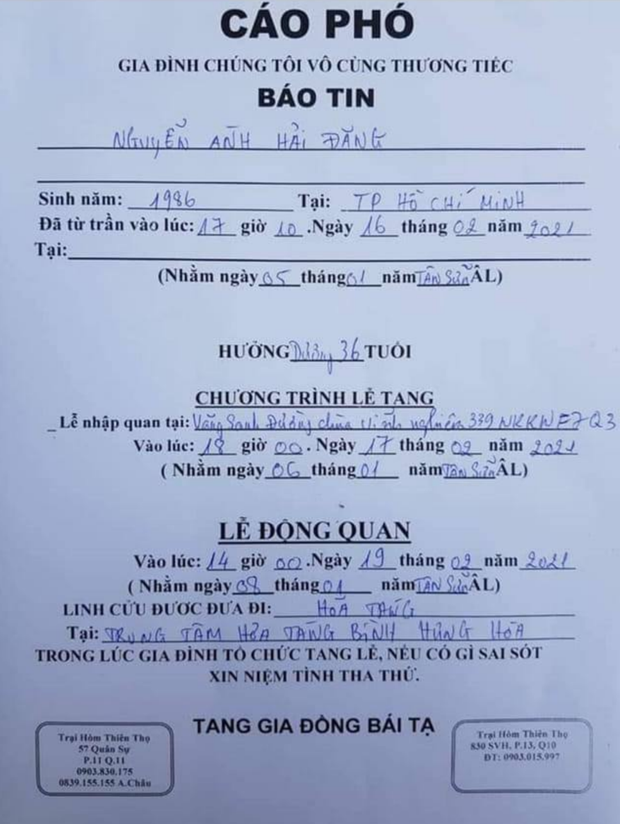 CÁO PHÓ
GIA ĐÌNH CHÚNG TÔI VÔ CÙNG THƯƠNG TIẾC
BÁO TIN
NGUYỄN ANH HẢI ĐĂNG
Sinh năm: 1986 Tại: TP HỒ CHÍ MINH
Đã từ trần vào lúc: 17 giờ 10. Ngày 16 tháng 02 năm 2021
Tại:
(Nhằm ngày 05 tháng 01 năm TÂN SỬU ÂL)
HƯỞNG Dương 36 TUỔI
CHƯƠNG TRÌNH LỄ TANG
Lễ nhập quan tại: Vãng Sanh Đường chùa Vĩnh nghiêm 339 NKKN F7 Q3
Vào lúc: 18 giờ 00. Ngày 17 tháng 02 năm 2021
( Nhằm ngày 06 tháng 01 năm TÂN SỬU ÂL)
LỄ ĐỘNG QUAN
Vào lúc: 14 giờ 00. Ngày 19 tháng 02 năm 2021
( Nhằm ngày 08 tháng 01 năm TÂN SỬU ÂL)
LINH CỬU ĐƯỢC ĐƯA ĐI: HỎA TÁNG
Tại: TRUNG TÂM HỎA TÁNG BÌNH HƯNG HÒA
TRONG LÚC GIA ĐÌNH TỔ CHỨC TANG LỄ, NẾU CÓ GÌ SAI SÓT
XIN NIỆM TÌNH THA THỨ.
TANG GIA ĐỒNG BÁI TẠ
Trại Hòm Thiên Thọ
57 Quân Sự
P.11 Q.11
0903.830.175
0839.155.155 A.Châu
Trại Hòm Thiên Thọ
830 SVH, P.13, Q10
ĐT: 0903.015.997